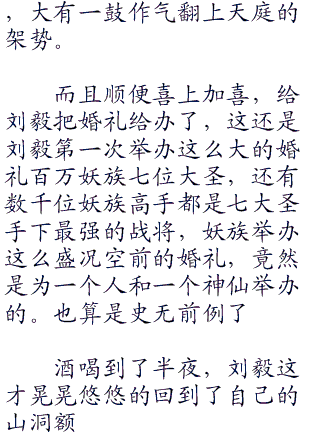 ，大有一鼓作气翻上天庭的
架势。
而且顺便喜上加喜，给
刘毅把婚礼给办了，这还是
刘毅第一次举办这么大的婚
礼百万妖族七位大圣，还有
数千位妖族高手都是七大圣
手下最强的战将，妖族举办
这么盛况空前的婚礼，竟然
是为一个人和一个神仙举办
的。也算是史无前例了
酒喝到了半夜，刘毅这
才晃晃悠悠的回到了自己的
山洞额